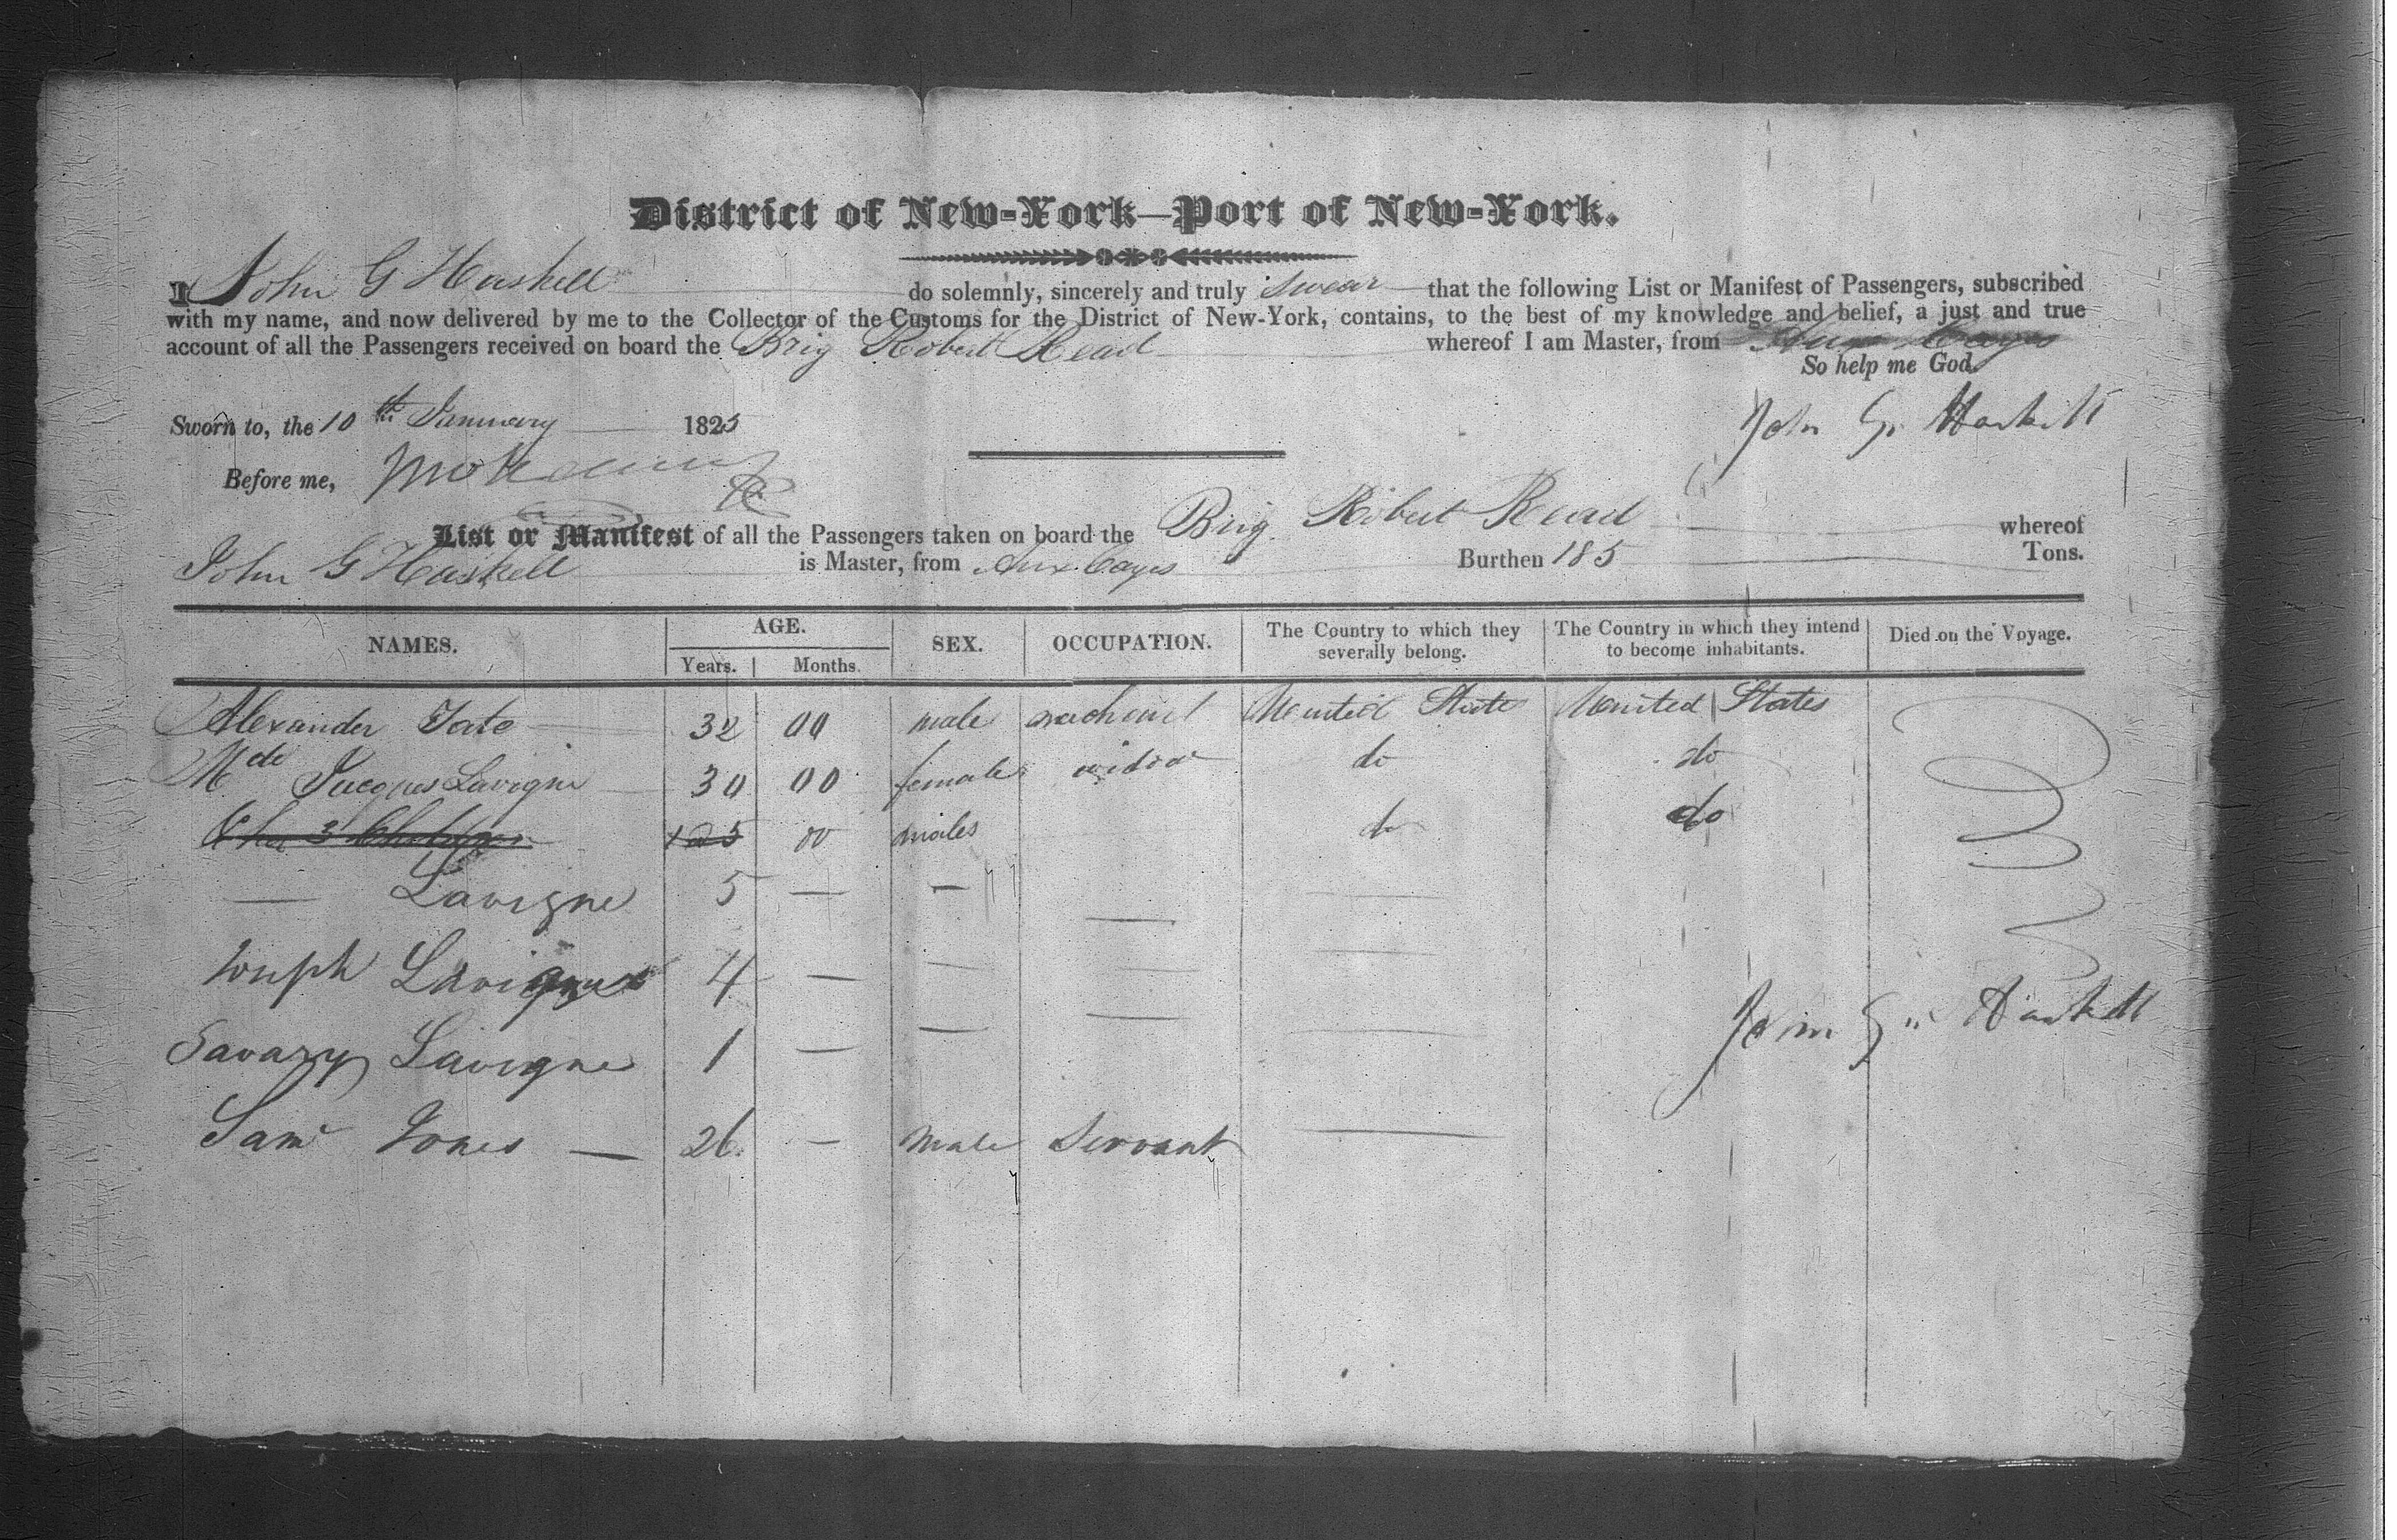 District of New-York—Port of New-York.
I John G Haskell do solemnly, sincerely and truly swear that the following List or Manifest of Passengers, subscribed
with my name, and now delivered by me to the Collector of the Customs for the District of New-York, contains, to the best of my knowledge and belief, a just and true
account of all the Passengers received on board the Brig Robert Read whereof I am Master, from Aux Cayes
So help me God.
Sworn to, the 10th January 1825 John G. Haskell
Before me,
List or Manifest of all the Passengers taken on board the Brig Robert Read whereof
John G Haskell is Master, from Aux Cayes Burthen 185 Tons.
NAMES. AGE. SEX. OCCUPATION. The Country to which they severally belong. The Country in which they intend to become inhabitants. Died on the Voyage.
Years. Months.
Alexander Tate 32 00 male merchant United States United States
Mde Jacques Lavigne 30 00 female widow do do
00 males do do
— Lavigne 5 — —
Joseph Lavigne 4 — — — —
Savazy Lavigne 1 — — — —
John G. Haskell
Saml Jones — 26 — male Servant —